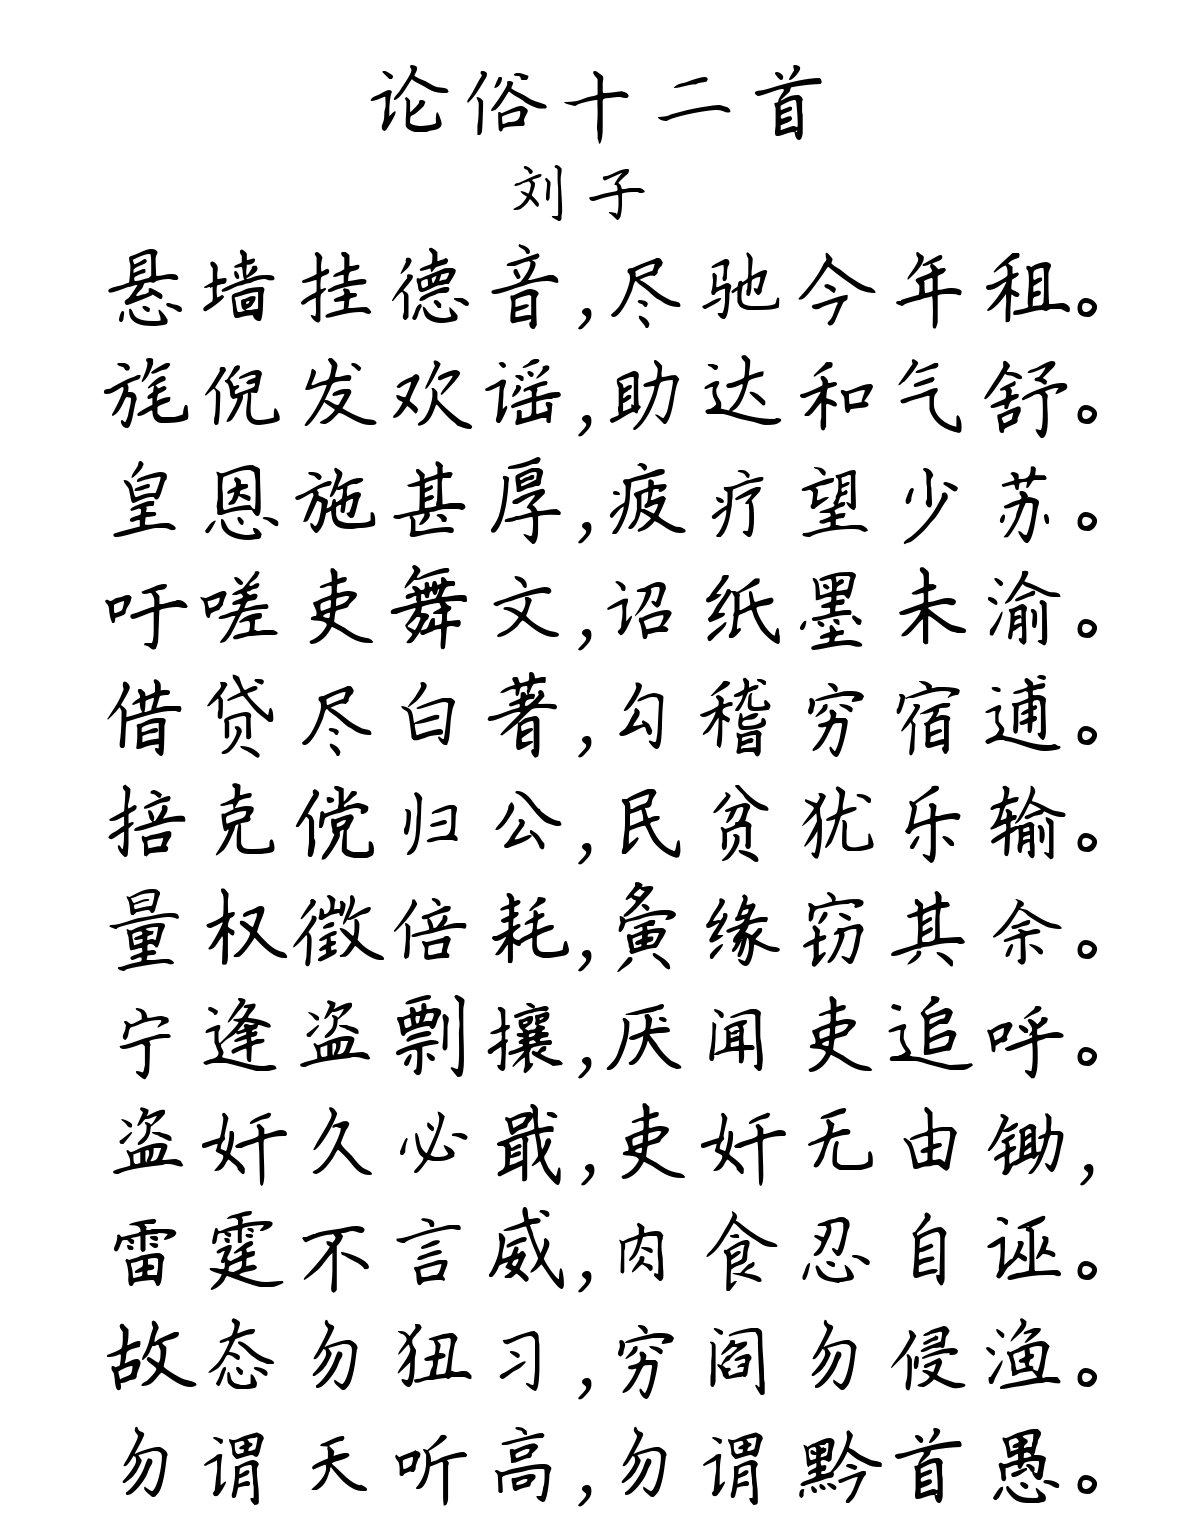 论俗十二首
刘子
悬墙挂德音,尽驰今年租。
旄倪发欢谣,助达和气舒。
皇恩施甚厚,疲疗望少苏。
吁嗟吏舞文,诏纸墨未渝。
借贷尽白著,勾稽穷宿逋。
掊克傥归公,民贫犹乐输。
量权徵倍耗,夤缘窃其余。
宁逢盗剽攘,厌闻吏追呼。
盗奸久必戢,吏奸无由锄,
雷霆不言威,肉食忍自诬。
故态勿狃习,穷阎勿侵渔。
勿谓天听高,勿谓黔首愚。